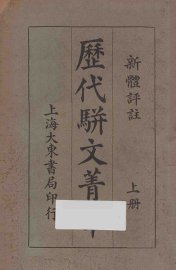 新體評註
上册
歷代駢文菁
上海大東書局印行